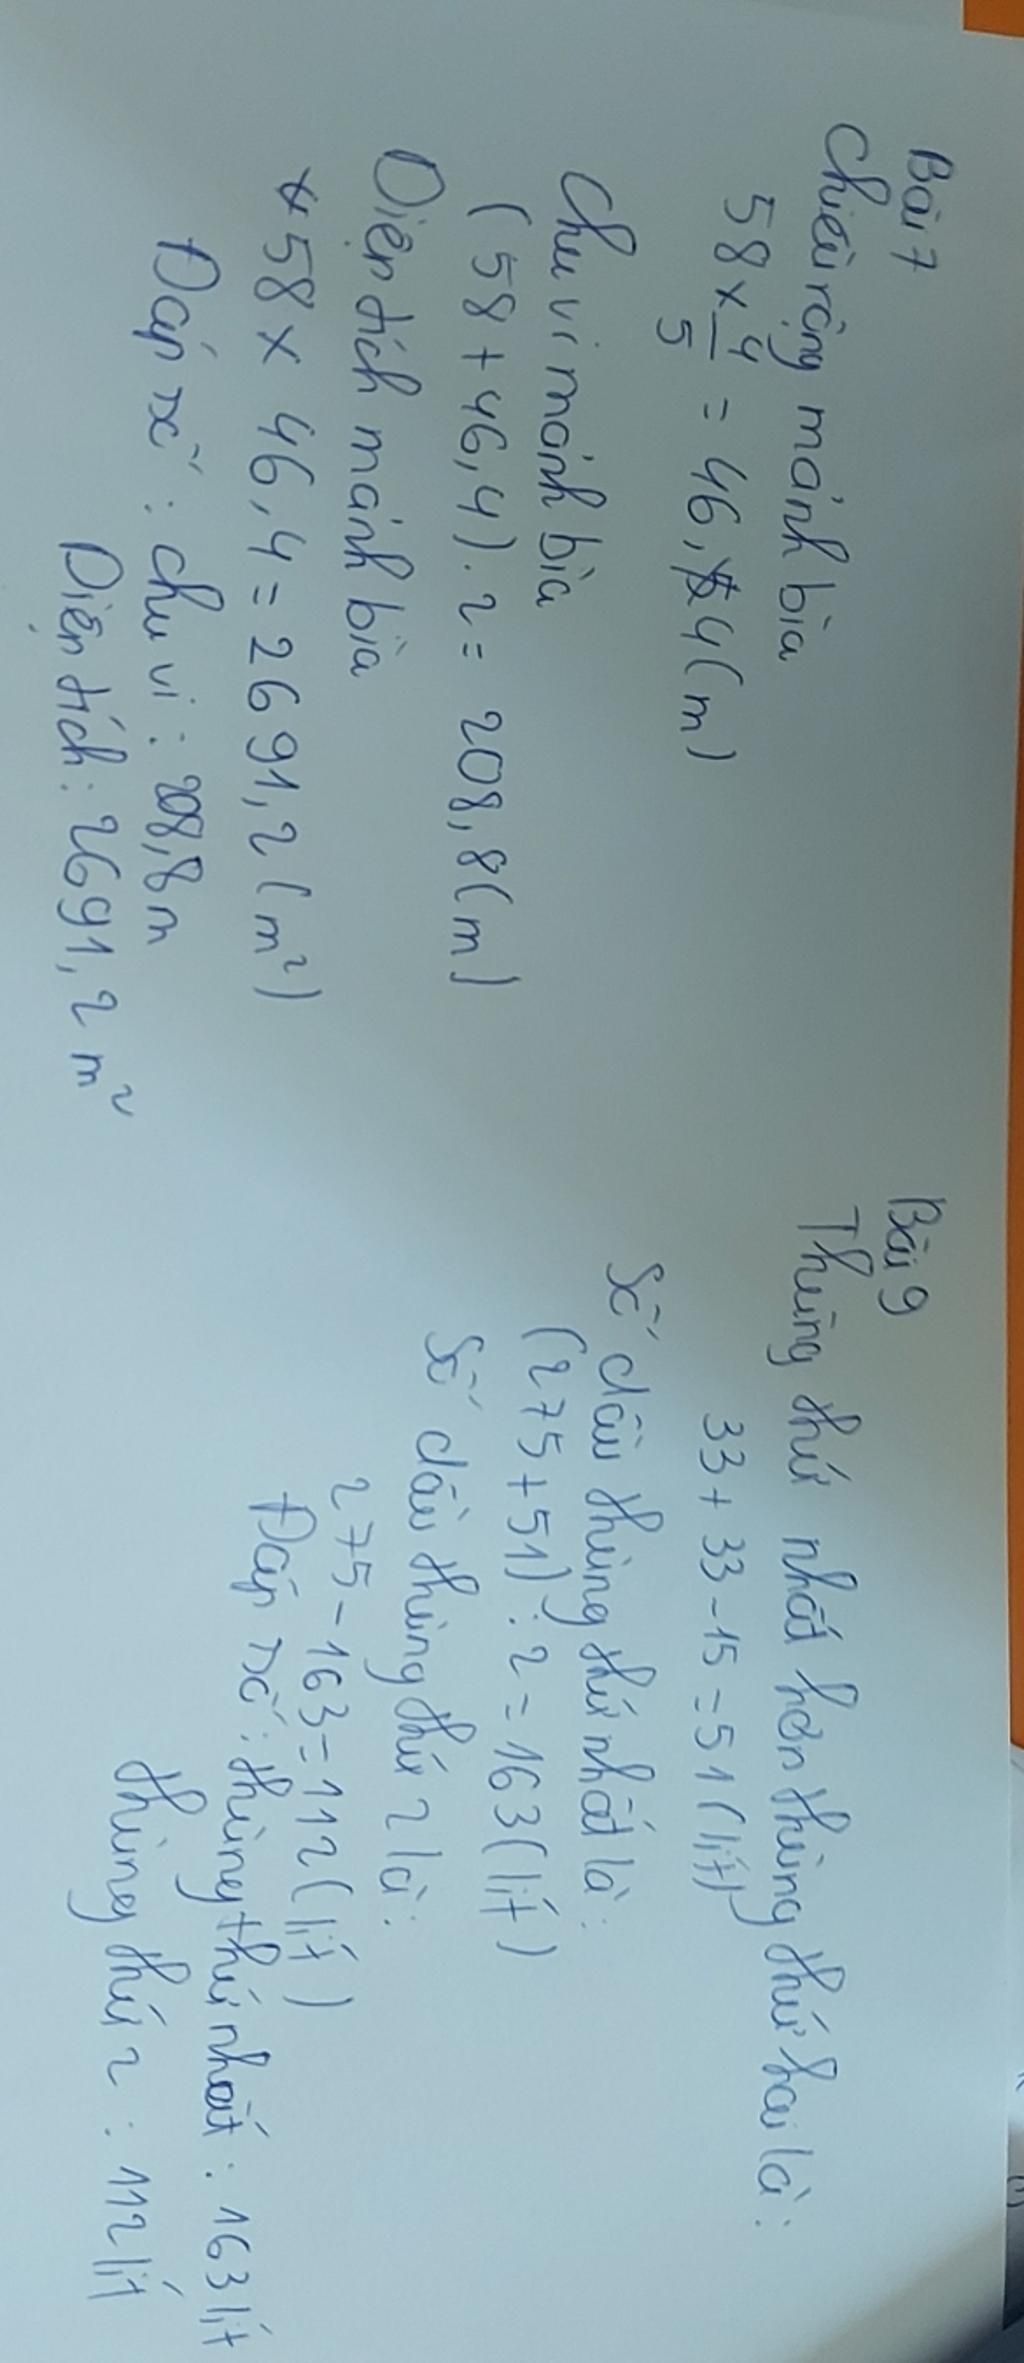 Bài 7
Chiều rộng mảnh bìa
58 × 4/5 = 46,4 (m)
Chu vi mảnh bìa
(58 + 46,4) . 2 = 208,8 (m)
Diện tích mảnh bìa
58 × 46,4 = 2691,2 (m²)
Đáp số : chu vi : 208,8 m
Diện tích : 2691,2 m²
Bài 9
Thùng thứ nhất hơn thùng thứ hai là :
33 + 33 - 15 = 51 (lít)
Số dầu thùng thứ nhất là :
(275 + 51) : 2 = 163 (lít)
Số dầu thùng thứ 2 là :
275 - 163 = 112 (lít)
Đáp số : thùng thứ nhất : 163 lít
thùng thứ 2 : 112 lít